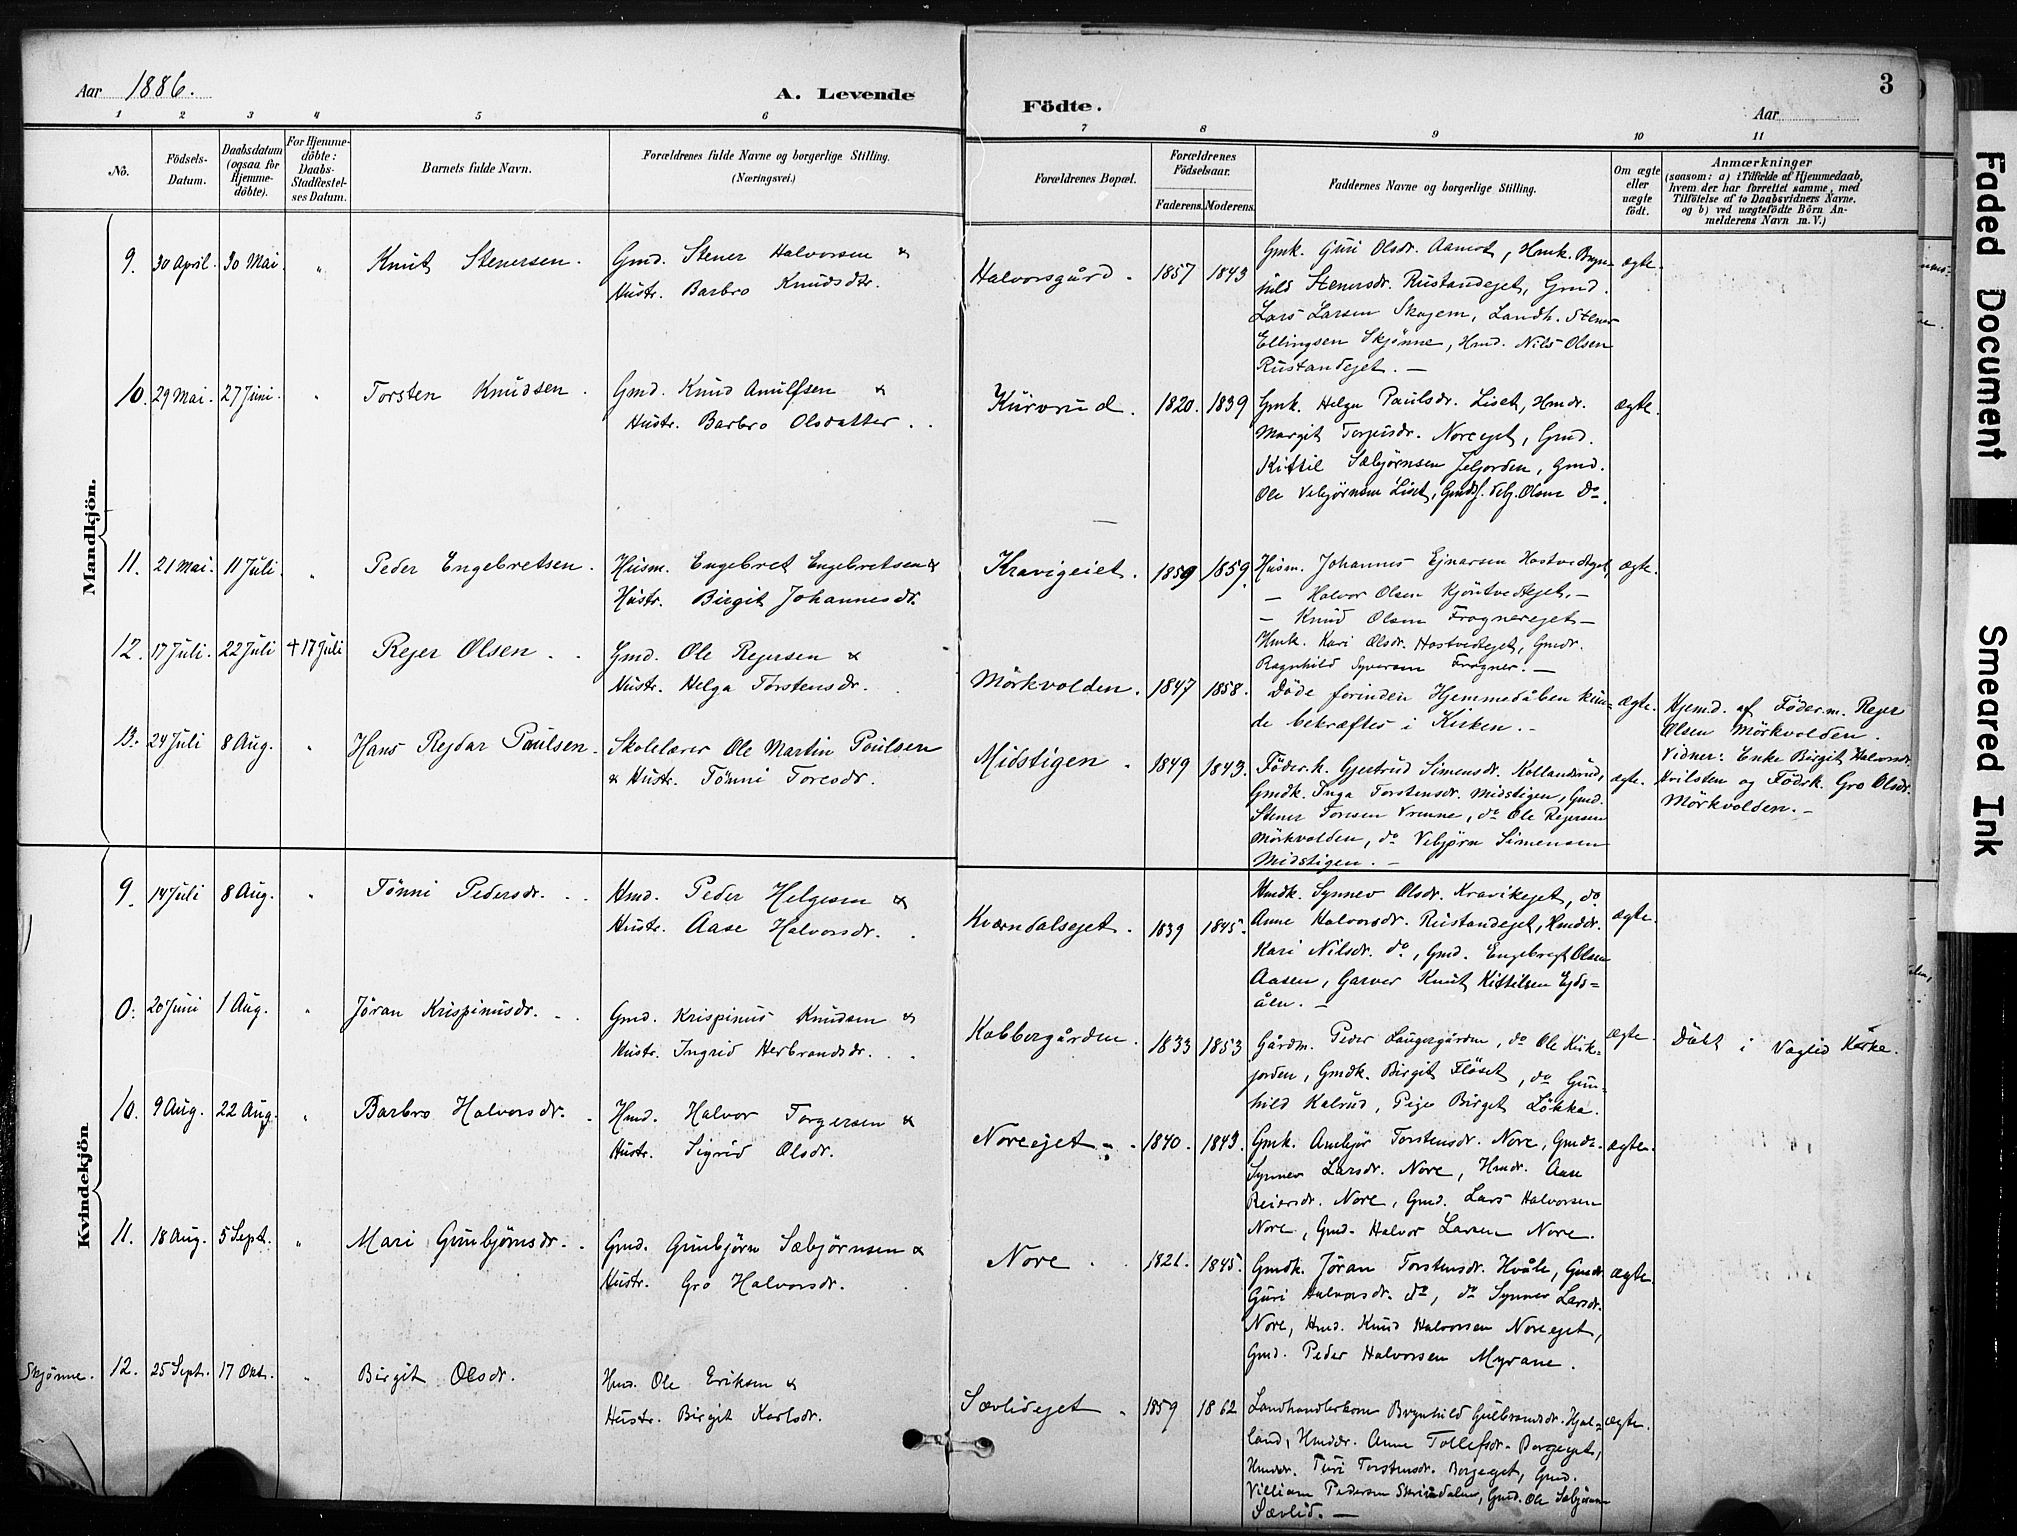 Aar 1886.
A. Levende Födte.
Aar
3
1 2 3 4 5 6 7 8 9 10 11
No.
Födsels-Datum.
Daabsdatum (ogsaa for Hjemme-döbte).
For Hjemme-döbte: Daabs-Stadfæstel-ses Datum.
Barnets fulde Navn.
Forældrenes fulde Navne og borgerlige Stilling.
(Næringsvei.)
Forældrenes Bopæl.
Forældrenes Födselsaar.
Faderens. Moderens.
Faddernes Navne og borgerlige Stilling.
Om ægte eller uægte födt.
Anmærkninger
(saasom: a) i Tilfælde af Hjemmedaab,
hvem der har forrettet samme, med
Tilföielse af to Daabsvidners Navne.
og b) ved uægtefödte Börn An-
melderens Navn m. V.)
Mandkjön.
9. 30 April. 30 Mai. " Knut Stenersen. Gmd. Stener Halvorsen &
Hustr. Barbro Knudsdtr.
Halvorsgård. 1857 1843
Gmk. Guri Olsdr. Aamot, Hmk. Bryn-
hild Stenersdr. Rustandejet, Gmd.
Lars Larsen Skajem, Landh. Stener
Ellingsen Skjønne, Hmd. Nils Olsen
Rustandejet. —
ægte.
10. 29 Mai. 27 Juni. " Torsten Knudsen. Gmd. Knud Anulfsen &
Hustr. Barbro Olsdatter.
Kürvrud. 1820. 1839
Gmk. Helga Paulsdr. Liset, Hmdr.
Margit Torjusdr. Noreejet, Gmd.
Kittil Sæbjørnsen Jeljorden, Gmd.
Ole Vebjørnsen Liset, Gmds. Vebj. Olsen Do.
ægte.
11. 21 Mai. 11 Juli. " Peder Engebretsen. Husm. Engebret Engebretsen &
Hustr. Birgit Johannesdr.
Kravigeiet. 1859 1859.
Husm. Johannes Ejnarsen Hostvedtejet,
— Halvor Olsen Kjöntvedtejet, —
— Knud Olsen Fragnerejet —
Hmk. Kari Olsdr. Hostvedtejet, Gmdr.
Ragnhild Syversen Fragner. —
ægte.
12. 17 Juli. 22 Juli † 17 Juli Rejer Olsen. Gmd. Ole Rejersen &
Hustr. Helga Torstensdr.
Mörkvolden. 1847 1858.
Döde forinden Hjemmedåben kun-
de bekræftes i Kirken. —
ægte.
Hjemd. af Föder.m. Rejer
Olsen Mörkvolden.
Vidner: Enke Birgit Halvorsdr.
Kvilsten og Födrk. Gro Olsdr.
Mörkvolden. —
13. 24 Juli 8 Aug. " Hans Rejdar Paulsen. Skolelærer Ole Martin Paulsen
& Hustr. Tönni Toresdr.
Midstigen. 1849 1843.
Föder.k. Gjertrud Simensdr. Kollandsrud,
Gmdk. Inga Torstensdr. Midstigen, Gmd.
Stener Tonsen Vrenne, do Ole Rejersen
Mörkvolden, do Vebjørn Simensen
Midstigen. —
ægte.
Kvindekjön
9. 14 Juli 8 Aug. " Tönni Pedersdr. Hmd. Peder Helgesen &
Hustr. Aase Halvorsdr.
Kværndalsejet. 1839 1845.
Hmdk. Synnev Olsdr. Kravikejet, do.
Anne Halvorsdr. Rustandejet, Hmddr.
Kari Nilsdr. do, Gmd. Engebregt Olsen
Aasen, Garver Knut Kittilsen Ejds-
åen. —
ægte.
0. 20 Juni 1 Aug. " Jöran Krispinusdr. Gmd. Krispinus Knudsen &
Hustr. Ingrid Herbrandsdr.
Kabbergården. 1833 1853
Gårdm. Peder Laugergården, do Ole Kirk-
jorden, Gmdk. Birgit Flåset, do Gun-
hild Kalrud, Pige Birget Lökka.
ægte.
Döbt i Vaglid Kirke.
10. 9 Aug. 22 Aug. " Barbro Halvorsdr. Hmd. Halvor Torgersen &
Hustr. Sigrid Olsdr.
Noreejet 1840. 1843.
Gmk. Ambjør Torstensdr. Nore, Gmdr.
Synnev Larsdr. Nore, Hmdr. Aase
Reiersdr. Nore, Gmd. Lars Halvorsen
Nore, Gmd. Halvor Larsen Nore.
ægte.
11. 18 Aug. 5 Sept. " Mari Gunbjörnsdr. Gmd. Gunbjörn Sæbjörnsen &
Hustr. Gro Halvorsdr.
Nore. 1821. 1845.
Gmdk. Jöran Torstensdr. Hvåle, Gmdr
Guri Halvorsdr. do, do Synnev Larsdr.
Nore, Hmd. Knud Halvorsen Noreejet,
Gmd. Peder Halvorsen Myrane.
ægte.
Skjönne. 12. 25 Sept. 17 Okt. " Birgit Olsdr. Hmd. Ole Eriksen &
Hustr. Birgit Karlsdr.
Sævlidejet. 1859 1862
Landhandlerkone Brynhild Gulbrandsdr. Hjal-
land, Hmddr. Anne Tollefsdr. Borgejet,
Hmddr. Turi Torstensdr. Borgejet, Gmd.
Villiam Pedersen Skrindalen, Gmd. Ole Sæbjørnsen
Sævlid. —
ægte.
Faded Document
Smeared Ink